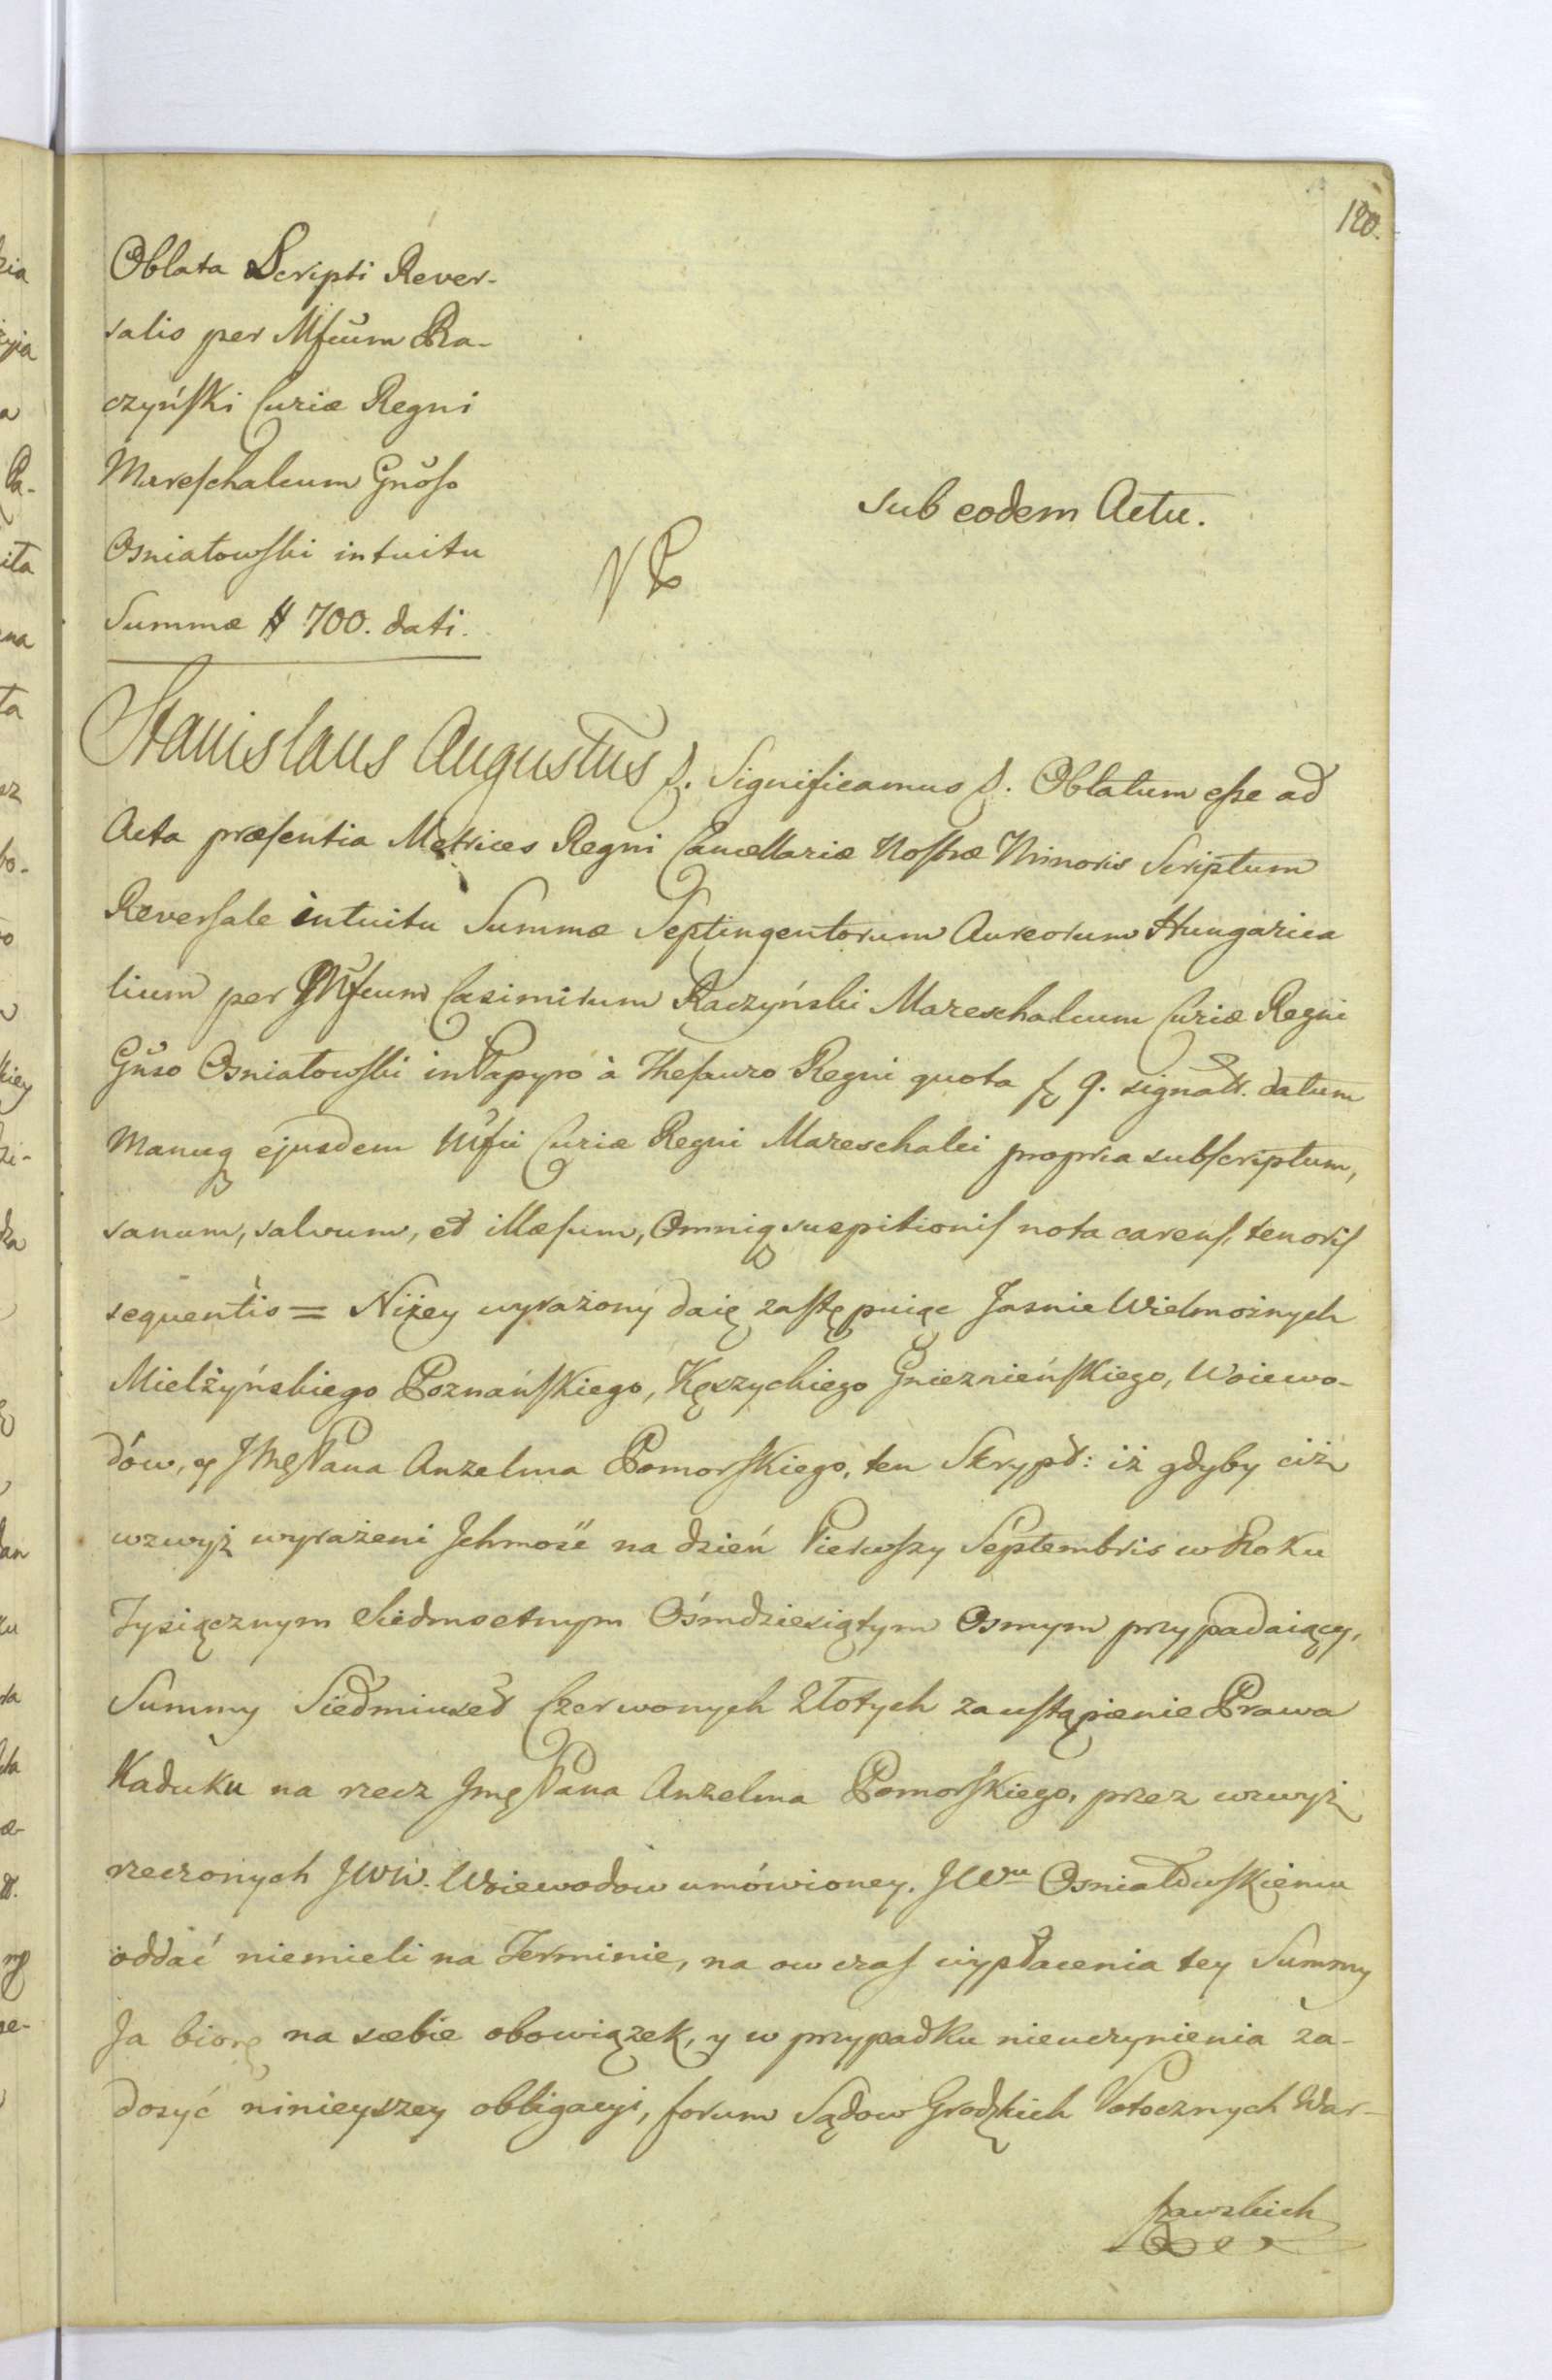 120.
Oblata Scripti Rever-
salis per Mfcum Ra-
czyńſki Curiæ Regni
Mareſchalcum Gnoſo
Osniatowſki intuitu
Summæ # 700. dati.
sub eodem Actu.
Stanislaus Augustus &. Significamus &. Oblatum eſse ad
Acta præſentia Metrices Regni Cancellariæ Noſtræ Minoris Scriptum
Reverſale intuitu Summæ Septingentorum Aureorum Hungarica
lium per Mfcum Casimirum Raczyński Mareschalcum Curiæ Regni
Gnso Osniatowſki in Papyro à Theſauro Regni quota fl 9. signatt. datum
Manuq ejusdem Mfci Curiæ Regni Mareschalci propria subſcriptum,
sanum, salvum, et illæſum, Omniq suspitioniſ nota carenſ, tenoriſ
sequentis = Niżey wyrażony daię zaſtępuiąc Jasnie Wielmożnych
Mielżyńskiego Poznańſkiego, Kęszyckiego Gnieznieńſkiego, Woiewo-
dów, y JMę Pana Anzelma Pomorſkiego, ten Skrypt: iż gdyby ciż
wzwyż wyrażeni Jchmość na dzień Pierwſzy Septembris w Roku
Tysiącznym Siedmsetnym Ośmdziesiątym Osmym przypadaiącey,
Summy Siedmiuset Czerwonych Złotych za uſtąpienie Prawa
Kaduku na rzecz Jmę Pana Anzelma Pomorſkiego, przez wzwyż
rzeczonych JWW. Woiewodow umówioney, JWu Osniatowſkiemu
oddać niemieli na Terminie, na ow czaſ wypłacenia tey Summy
Ja biorę na siebie obowiązek, y w przypadku nieuczynienia za-
dosyć ninieyszey obligacyi, forum Sądow Grodzkich Potocznych War-
szawskich